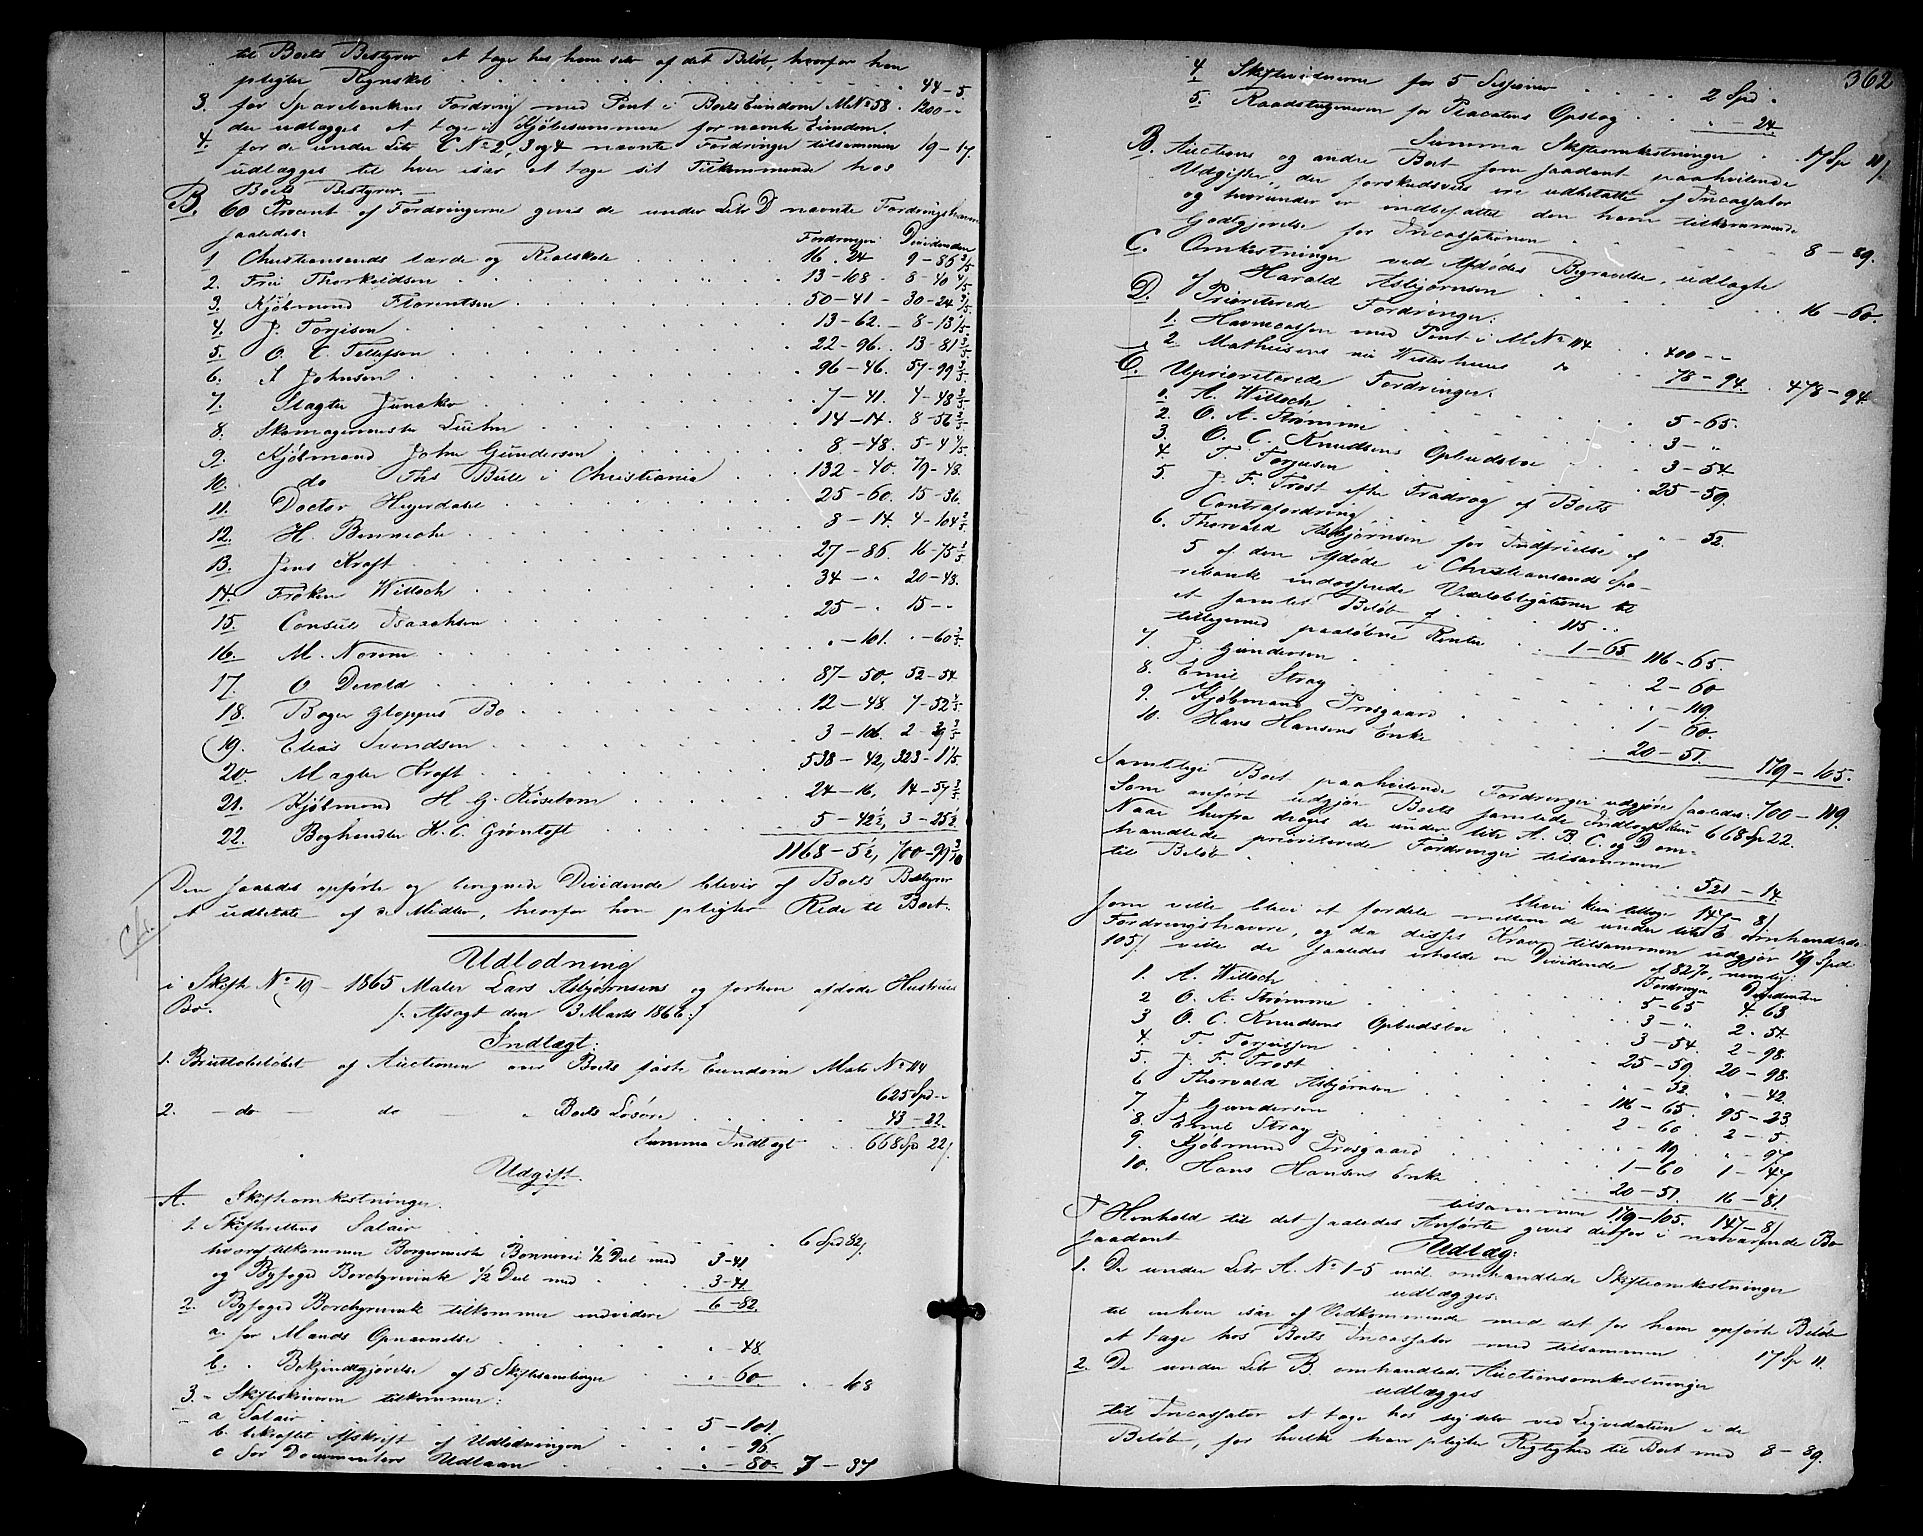 til Boets Bestyrer at tage hos ham selv af det Beløb, hvorfor han
pligter Regnskab . . . 44 - 5.
3. for Sparebankens Fordring med Pant i Boets Eiendom M.No 58 . 1200 - "
der udlægges at tage i Kjøbesummen for nævnte Eiendom.
4. for de under Litr C No 2, 3 og 4 nævnte Fordringer tilsammen 19 - 17.
udlægges til hver især at tage sit Tilkommende hos
Boets Bestyrer. -
B. 60 Procent af Fordringerne gives de under Litr D nævnte Fordringshavere
saaledes: Fordringer Dividenden
1 Christiansands lærde og Realskole . . . 16 . 24 9 - 86 2/5
2. Frü Thorkildsen . . . 13 - 108 . 8 - 40 4/5
3. Kjøbmand Florentsen . . . 50 - 41 - 30 - 24 3/5
4. J. Torjisen . . . 13 - 62. - 8 - 13 1/5
5. O. C. Tellefsen . . . 22 - 96. . 13 - 81 3/5
6. J Johnsen . . . 96 - 46. 57 - 99 3/5
7. Slagter Juncker . . . 7 - 41. 4 - 48 3/5
8. Skomagermester Lühr . . . 14 - 14. 8 - 56 2/5
9. Kjøbmand John Gundersen . . . 8 - 48. 5 - 4 4/5
10. do Ths Büll i Christiania . 132 - 40. 79 - 48.
11. Doctor Heyerdahl . . . 25 - 60. 15 - 36.
12. H. Benneche . . . 8 - 14. 4 - 104 2/5
13. Jens Kraft . . . 27 - 86 16 - 75 3/5
14. Frøken Willoch . . . 34 - " 20 - 48.
15. Consul Isaachsen . . . 25 - " 15 - "
16. M. Norem . . . " - 101. " - 60 3/5
17. O Devold . . . 87 - 50. 52 - 54
18. Bager Gloppes Bo . . . 12 - 48. 7 - 52 4/5
19. Elias Svendsen . . . 3 - 106. 2 - 39 3/5
20. Mægler Kraft . . . 538 - 42, 323 - 1 1/5
21. Kjøbmand H. G. Kiøsebom . . . 24 - 16, 14 - 57 3/5
22. Boghandler H. C. Grøntoft . . . 5 - 42½, 3 - 25½
1168 - 5½, 700 - 99 3/10
Den saaledes opførte og beregnede Dividende bliver af Boets Bestyrer
at udbetale af dets Midler, hvorfor han pligter Rede til Boet.
Udlodning
i Skifte No 19 - 1865 Maler Lars Asbjørnsens og forhen afdøde Hustrues
Bo. /: Afsagt den 3 Marts 1866 :/
Indtægt:
1. Bruttobeløbet af Auctionen over Boets faste Eiendom Matr No 114
625 Spd - "
2. - do - do - " Boets Løsøre . . . 43 - 22.
Summa Indtægt . . 668 Sp 22/.
Udgift.
A. Skifteomkostninger.
1. Skifterettens Salair . . . 6 Spd 82/.
hvoraf tilkommer Borgermester Bonnevie 1/2 Deel med 3 - 41
og Byfoged Borchgrevink 1/2 Deel med . . 3 - 41.
2. Byfoged Borchgrevink tilkommer endvidere 6 - 82
a. for Mands Opnævnelse . . . " - 48.
b. " Bekjendtgjørelse af 5 Skiftesamlinger . . " - 60 . . " - 108
3. - Skifteskriveren tilkommer:
a Salair . . . 5 - 101.
b. bekræftet Afskrift af Udlodningen . . " - 96.
c for Documenters Udlaan . . . " - 80. 7 - 37
362
4 Skiftevidnerne for 5 Sessioner . . . 2 Spd "
5. Raadstuetjeneren for Placaters Opslag . . " - 24
Summa Skifteomkostninger . . 17 Sp 11/.
B. Auctions og andre Boet som saadant paahvilende
Udgifter, der forskudsvis ere udbetalte af Incassator
og hvorunder er indbefattet den ham tilkommende
Godtgjørelse for Incassationen . . . 8 - 89.
C. Omkostninger ved Afdødes Begravelse, udlagte
af Harald Asbjørnsen . . . 16 - 60.
D. Prioriterede Fordringer:
1. Havnecassen med Pant i M No 114 . 400 - "
2 Mathiesens nu Westerhuus do . . 78 - 94. . 478 - 94
E. Uprioriterede Fordringer:
1. A. Willoch . . . 5 - 65.
2. O. A. Strømme . . . 3 - "
3. O. C. Knudsens Opbudsbo . . . 3 - 54
4. T. Torjusen . . . 25 - 59.
5. J. F. Trost efter Fradrag af Boets
Contrafordring . . . " - 52.
6. Thorvald Asbjørnsen for Indfrielse af
5 af den Afdøde i Christiansands Spa-
rebanke indossserede Vexelobligationer til
et samlet Beløb af . . . 115 "
tilligemed paaløbne Renter . . 1 - 65 116 - 65.
7. J. Gundersen . . . 2 - 60
8. Emil Stray . . . " - 119.
9. Kjøbmand Prosgaard . . . 1 - 60.
10. Hans Hansens Enke . . . 20 - 51. 179 - 105.
Samtlige Boet paahvilende Fordringer udgjøre saaledes: 700 - 119.
Som anført udgjør Boets samlede Indtægt kun 668 Sp 22.
Naar herfra drages de under litr A. B. C. og D om-
handlede prioriterede Fordringer tilsammen
til Beløb . . . 521 - 14
bliver kun tilbage 147 - 8/
som ville blive at fordele mellem de under litr E omhandlede
Fordringshavere, og da disses Krav tilsammen udgjør 179 Spd
105/ ville de saaledes erholde en Dividende af 82%, nemlig:
Fordringer Dividenden
1. A. Willoch . . . 5 - 65 4. 63
2 O. A. Strømme . . . 3 - " 2. 54.
3 O. C. Knudsens Opbudsbo . . . 3 - 54. 2 - 98.
4. T. Torjussen . . . 25 - 59. 20 - 98.
5. J. F. Trost . . . " - 52. " - 42.
6 Thorvald Asbjørnsen . . . 116 - 65 95 - 23.
7. J Gundersen . . . 2 - 60. 2 - 5.
8. Emil Stray . . . " - 119. " - 97
9. Kjøbmand Prosgaard . . . 1 - 60 1 - 47
10. Hans Hansens Enke . . . 20 - 51. 16 - 81.
tilsammen 179 - 105. 147 - 8/
I Henhold til det saaledes Anførte gives derfor i nærværende Bo
saadant Udlæg:
1. De under Litr A. No 1-5 incl. omhandlede Skifteomkostninger
udlægges:
til enhver især af Vedkommende med det for ham opførte Beløb
at tage hos Boets Incassator med tilsammen . 17 Sp 11.
2. De under Litr B. omhandlede Auctionsomkostninger
udlægges
til Incassator at tage hos sig selv ved Liqvidation i de
Beløb, for hvilke han pligter Rigtighed til Boet med 8 - 89.